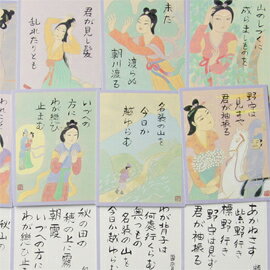 君が見し髪
乱れたりとも
未だ
渡らぬ
朝川渡る
山のしづくに
成らましものを
いづへの
方に
わが恋
止まむ
名張の山を
今日か
越ゆらむ
野守は
見ずや
君が袖振る
秋山の
秋の田の
穂の上に霧
朝霞
いづへの方に
わが恋
わが背子は
何處行くらむ
奥つもの
名張の山を
今日か越ゆらむ
あかねさす
紫野行き
標野行き
野守は見ずや
君が袖振る